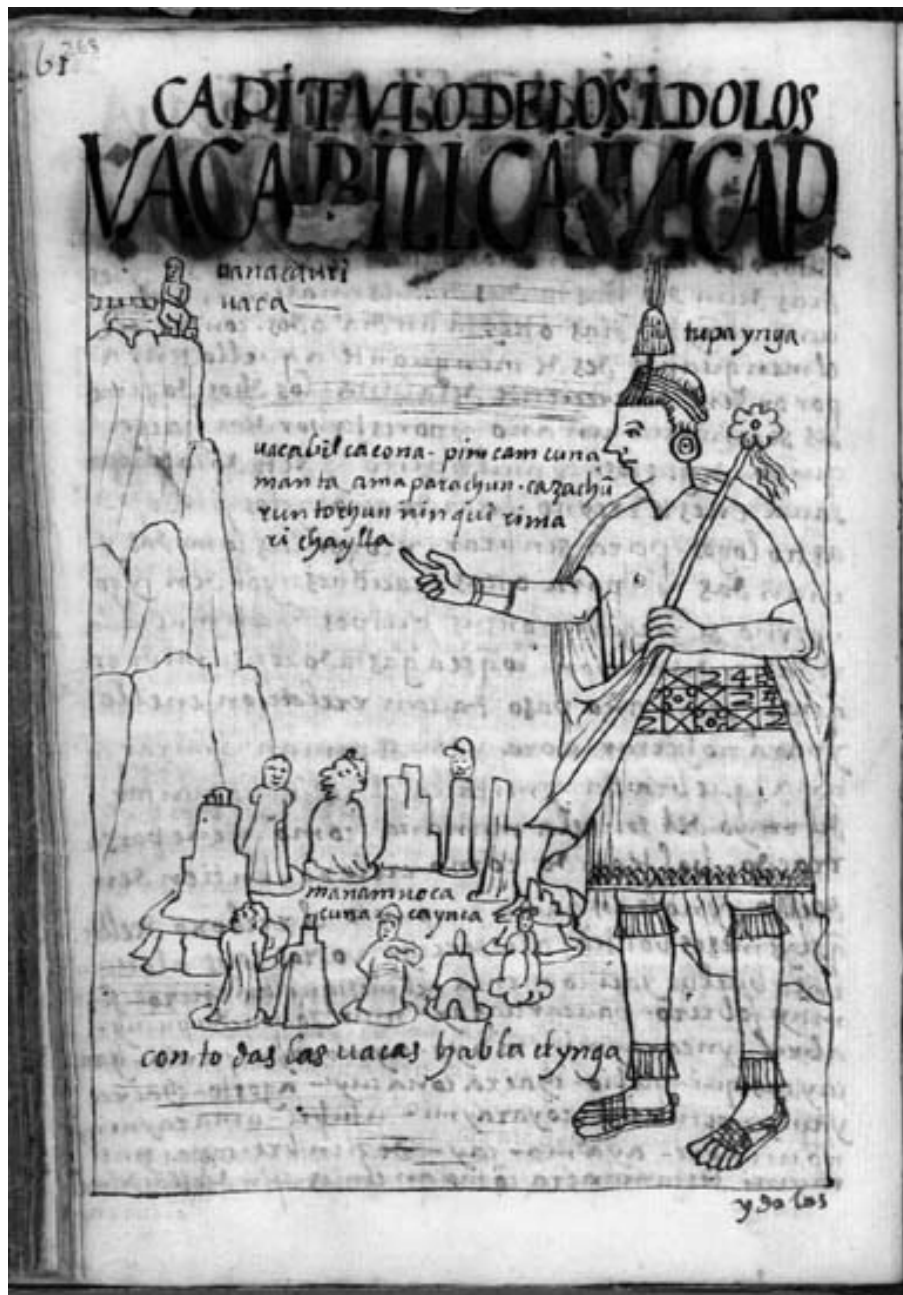 61 263
CAPITVLO DE LOS IDOLOS
VACA BILLCA INCAP
uanacauri
uaca
tupa ynga
uacabilcacona - pim cam cuna
manta ama parachun - cazachū
runtochun ninqui rima
ri chaylla
manam noca
cuna caynca
con todas las uacas habla el ynga
ydolos